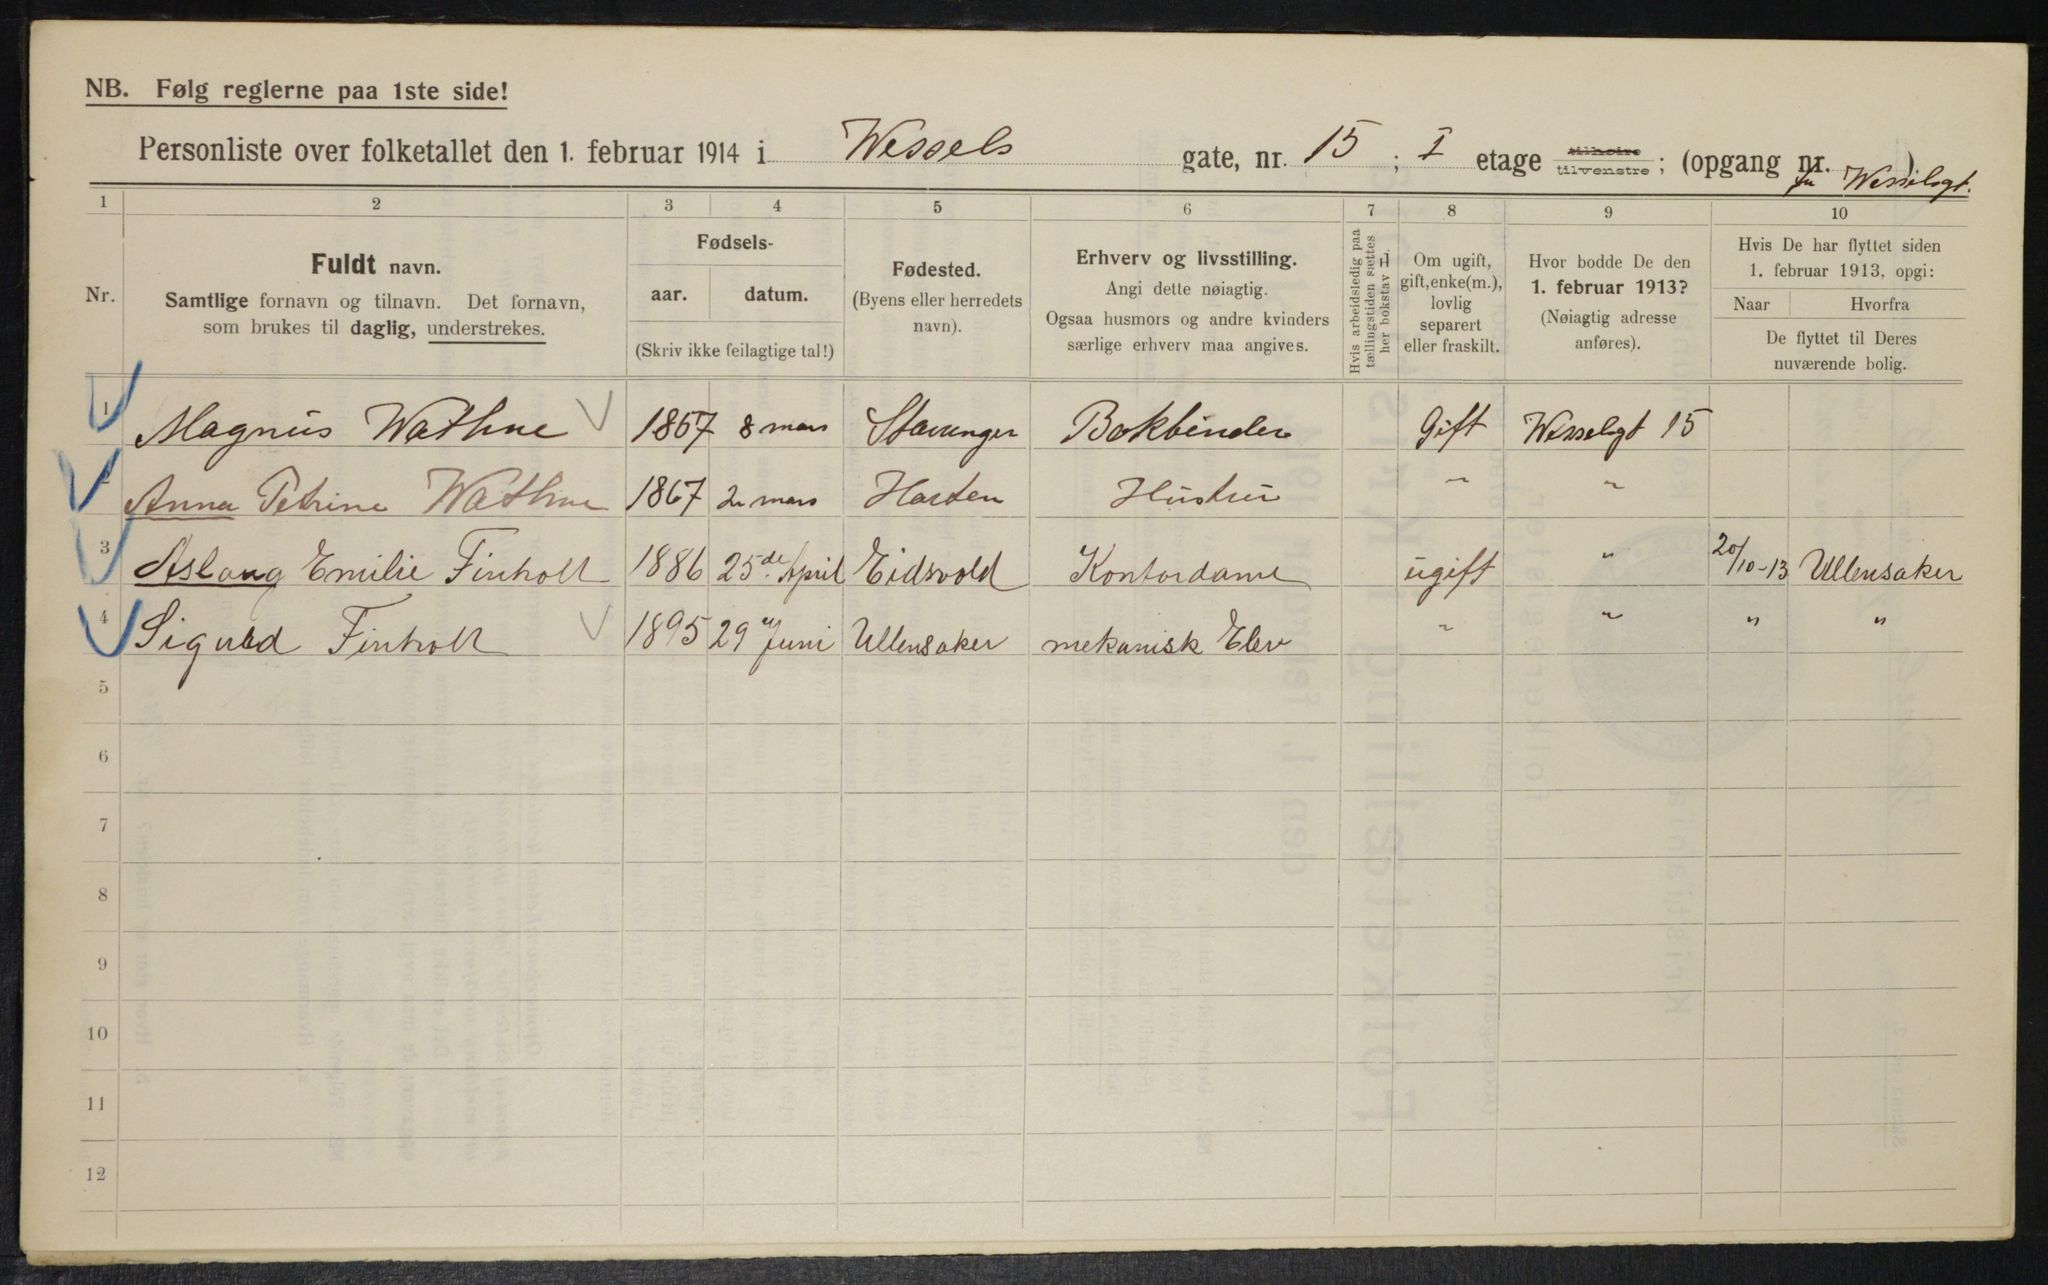 NB. Følg reglerne paa 1ste side!
Personliste over folketallet den 1. februar 1914 i Wessels gate, nr. 15 ; I etage tilhøire tilvenstre ; (opgang nr. )
Wesselsgt.
1 2 3 4 5 6 7 8 9 10
Nr.
Fuldt navn.
Samtlige fornavn og tilnavn. Det fornavn,
som brukes til daglig, understrekes.
Fødsels-
aar. datum.
(Skriv ikke feilagtige tal!)
Fødested.
(Byens eller herredets
navn).
Erhverv og livsstilling.
Angi dette nøiagtig.
Ogsaa husmors og andre kvinders
særlige erhverv maa angives.
Hvis arbeidsledig paa
tællingstiden sættes
her bokstav L
Om ugift,
gift, enke(m.),
lovlig
separert
eller fraskilt.
Hvor bodde De den
1. februar 1913?
(Nøiagtig adresse
anføres).
Hvis De har flyttet siden
1. februar 1913, opgi:
Naar Hvorfra
De flyttet til Deres
nuværende bolig.
1 Magnus Wathne 1867 8 mars Stavanger Bokbinder Gift Wesselsgt 15
Anna Petrine Wathne 1867 2 mars Hustru " "
3 Aslaug Emilie Finholt 1886 25de April Eidsvold Kontordame ugift " 20/10-13 Ullensaker
4 Sigurd Finholt 1895 29 Juni Ullensaker mekanisk Elev " " " "
5
6
7
8
9
10
11
12